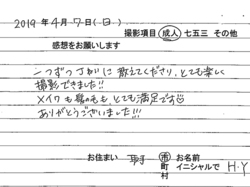 2019年 4月 7日(日)
撮影項目 成人 七五三 その他
感想をお願いします
一つずつていねいに教えてくださり、とても楽しく
撮影できました!!
メイクも髪の毛も、とても満足です
ありがとうございました!!!
お住まい 市 町 村 お名前 イニシャルで H.Y